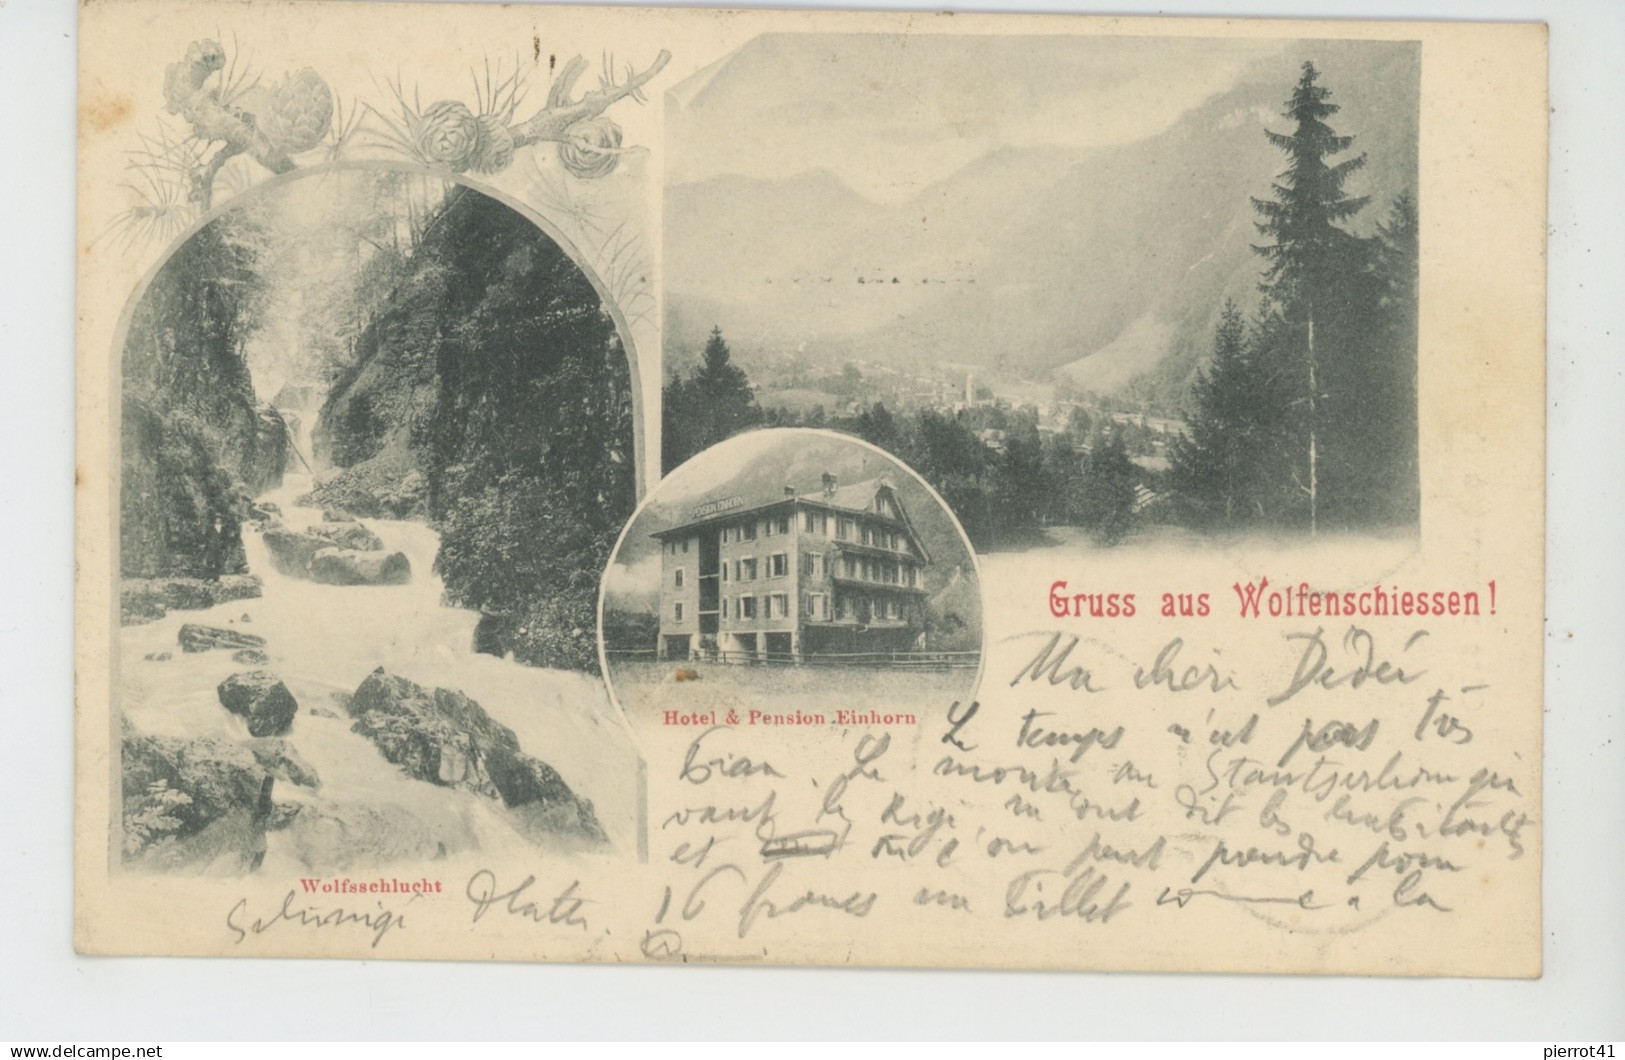 PENSION EINHORN
Gruss aus Wolfenschiessen!
Hotel & Pension Einhorn
Wolfsschlucht
Ma chère Dédée
Le temps n'est pas très
bien. Le monte au Stanserhorn qui
vaut le Rigi m'ont dit les habitants
et où l'on peut prendre pour
16 francs un billet à la
Schynige Platte.
pierrot41